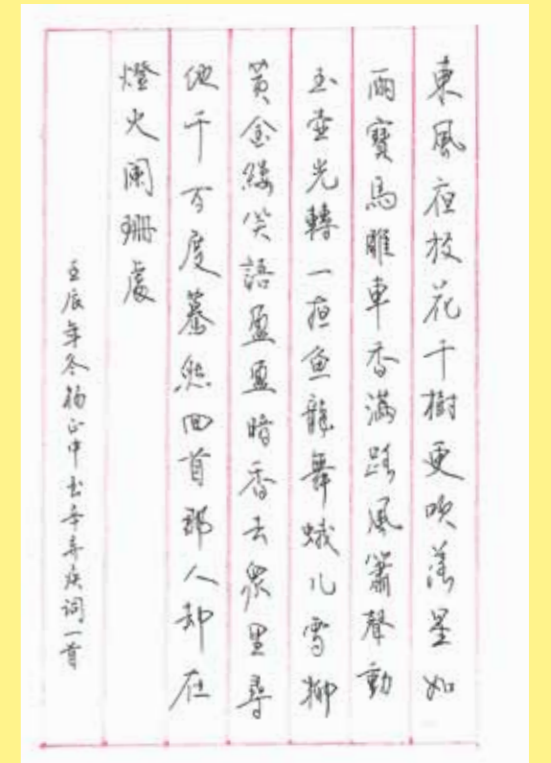 東風夜放花千樹更吹落星如
雨寶馬雕車香滿路風簫聲動
玉壺光轉一夜魚龍舞蛾儿雪柳
黃金縷笑語盈盈暗香去眾里尋
他千百度驀然回首那人卻在
燈火闌珊處
壬辰年冬楊正中书辛弃疾词一首